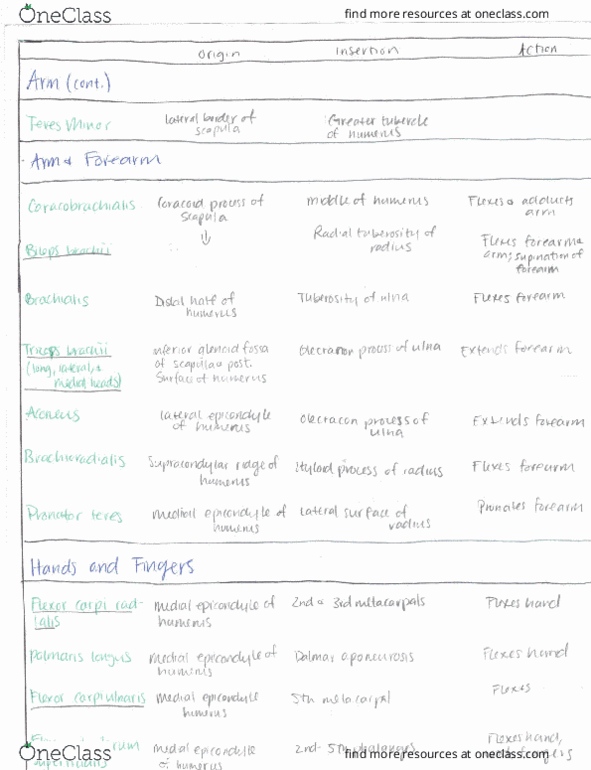 OneClass find more resources at oneclass.com
Origin Insertion Action
Arm (cont.)
Teres Minor lateral border of scapula Greater tubercle of humerus
Arm & Forearm
Coracobrachialis Coracoid process of scapula middle of humerus Flexes & adducts arm
Biceps brachii ↓ Radial tuberosity of radius Flexes forearm & arm; supination of forearm
Brachialis Distal half of humerus Tuberosity of ulna Flexes forearm
Triceps brachii inferior glenoid fossa Olecranon process of ulna Extends forearm
(long, lateral, & of scapula & post.
medial heads) Surface of humerus
Anconeus lateral epicondyle of humerus Olecranon process of ulna Extends forearm
Brachioradialis Supracondylar ridge of humerus Styloid process of radius Flexes forearm
Pronator teres medial epicondyle of humerus Lateral surface of radius Pronates forearm
Hands and Fingers
Flexor carpi rad- medial epicondyle of 2nd & 3rd metacarpals Flexes hand
ialis humerus
Palmaris longus medial epicondyle of humerus Palmar aponeurosis Flexes hand
Flexor carpi ulnaris medial epicondyle humerus 5th metacarpal Flexes
medial epicondyle 2nd-5th Flexes hand,
of humerus
OneClass find more resources at oneclass.com